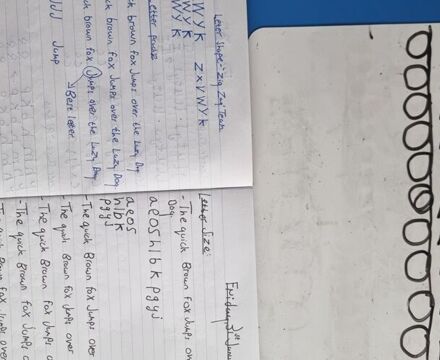 Letter Shape- Zig Zag Team
VWYK Z X V W Y K
WYK
WYK
Letter Practice
brown fox Jumps over the Lazy Dog
brown fox Jumps over the Lazy Dog
brown fox Jumps over the Lazy Dog
Best letter
JJJ Jump
Friday 3rd
Letter Size:
- The quick Brown fox Jumps
Dog.
aeoshlbkpgyj
aeos
hlbk
pgyj
- The quick Brown fox Jumps over
- The quick Brown fox Jumps over
- The quick Brown fox Jumps
- The quick Brown fox Jumps